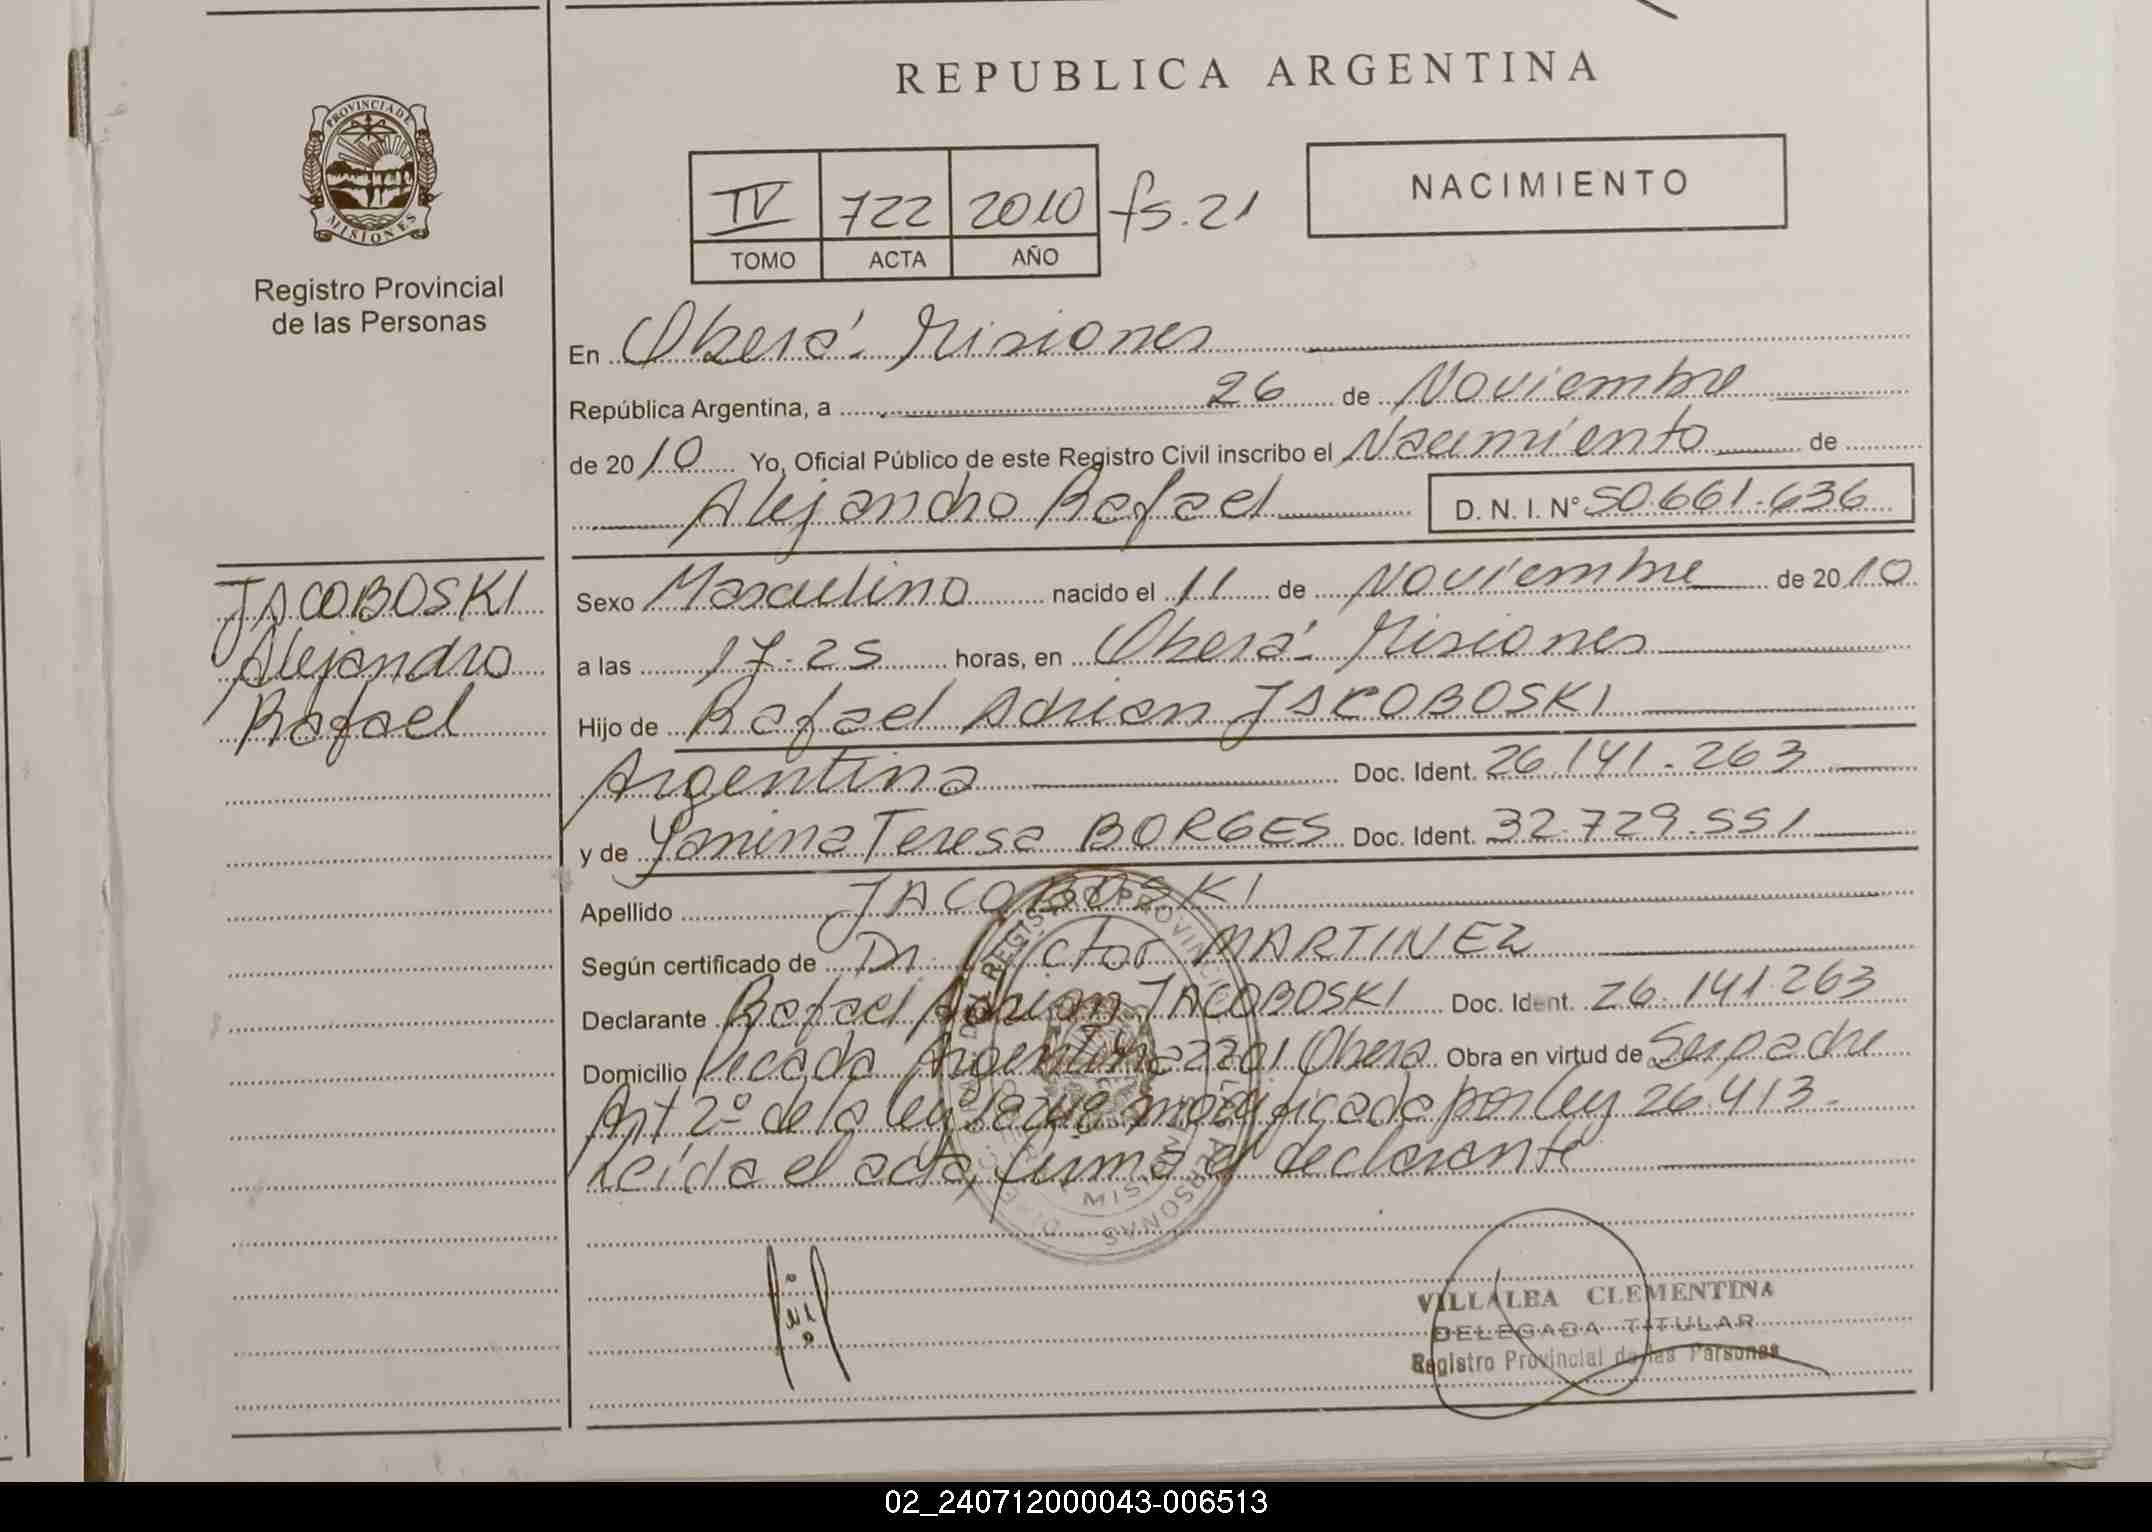 REPUBLICA ARGENTINA
PROVINCIA DE
MISIONES
Registro Provincial
de las Personas
IV 722 2010 fs. 21
TOMO ACTA AÑO
NACIMIENTO
En Oberá. Misiones
República Argentina, a 26 de Noviembre
de 2010 Yo, Oficial Público de este Registro Civil inscribo el Nacimiento de
Alejandro Rafael D. N. I. Nº 50.661.636
JACOBOSKI
Alejandro
Rafael
Sexo Masculino nacido el 11 de Noviembre de 2010
a las 17.25 horas, en Oberá. Misiones
Hijo de Rafael Adrian JACOBOSKI
Argentina Doc. Ident. 26.141.263
y de Yanina Teresa BORGES Doc. Ident. 32.729.551
Apellido JACOBOSKI
Según certificado de Dr. Victor MARTINEZ
Declarante Rafael Adrian JACOBOSKI Doc. Ident. 26.141.263
Domicilio Picada Argentina 2201 Oberá Obra en virtud de Ser padre
Art 2º de la ley modificada por ley 26.413.
Leída el acta, firma el declarante
REGISTRO PROVINCIAL DE LAS PERSONAS
MISIONES
VILLALBA CLEMENTINA
DELEGADA TITULAR
Registro Provincial de las Personas
02_240712000043-006513